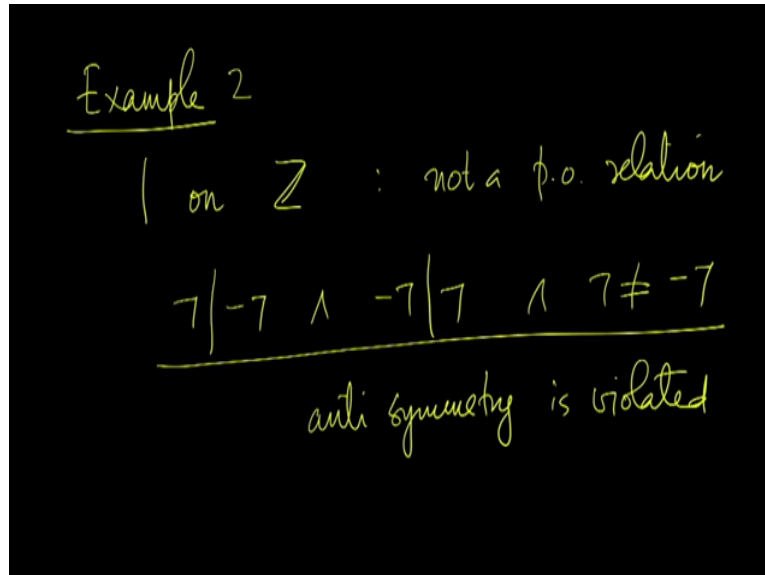 Example 2
| on ℤ : not a p.o. relation
7|-7 ∧ -7|7 ∧ 7≠-7
anti symmetry is violated